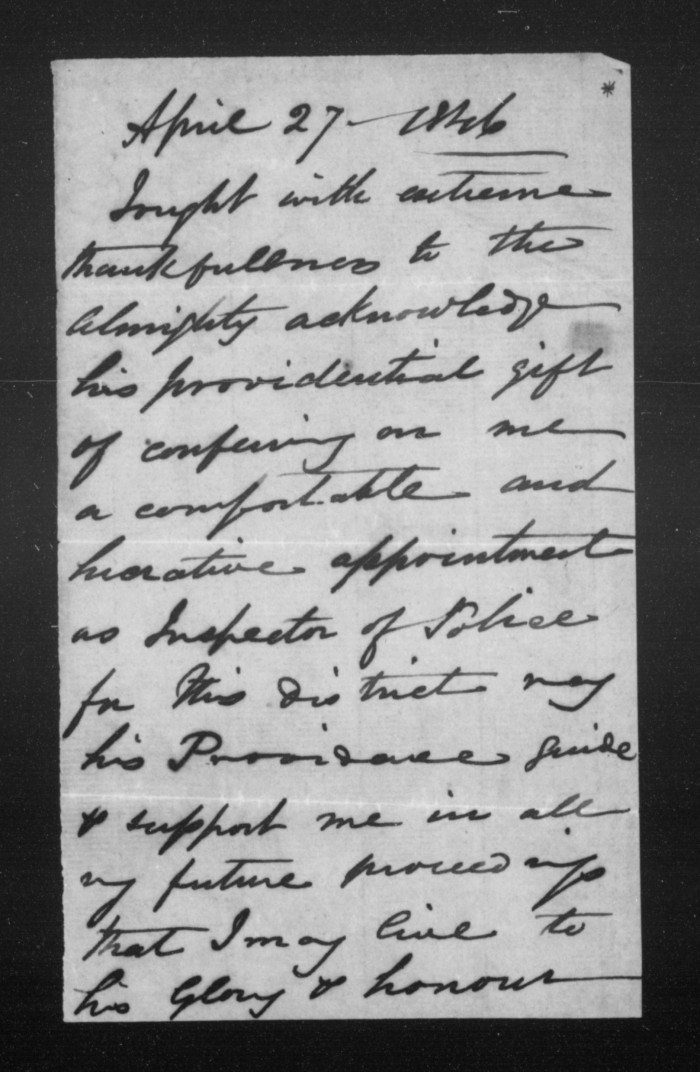 April 27 - 1846
I ought with extreme
thankfullness to the
Almighty acknowledge
his providential gift
of confering on me
a comfortable and
lucrative appointment
as Inspector of Police
for this district may
his Providence guide
& support me in all
my future proceedings
that I may live to
his Glory & honour